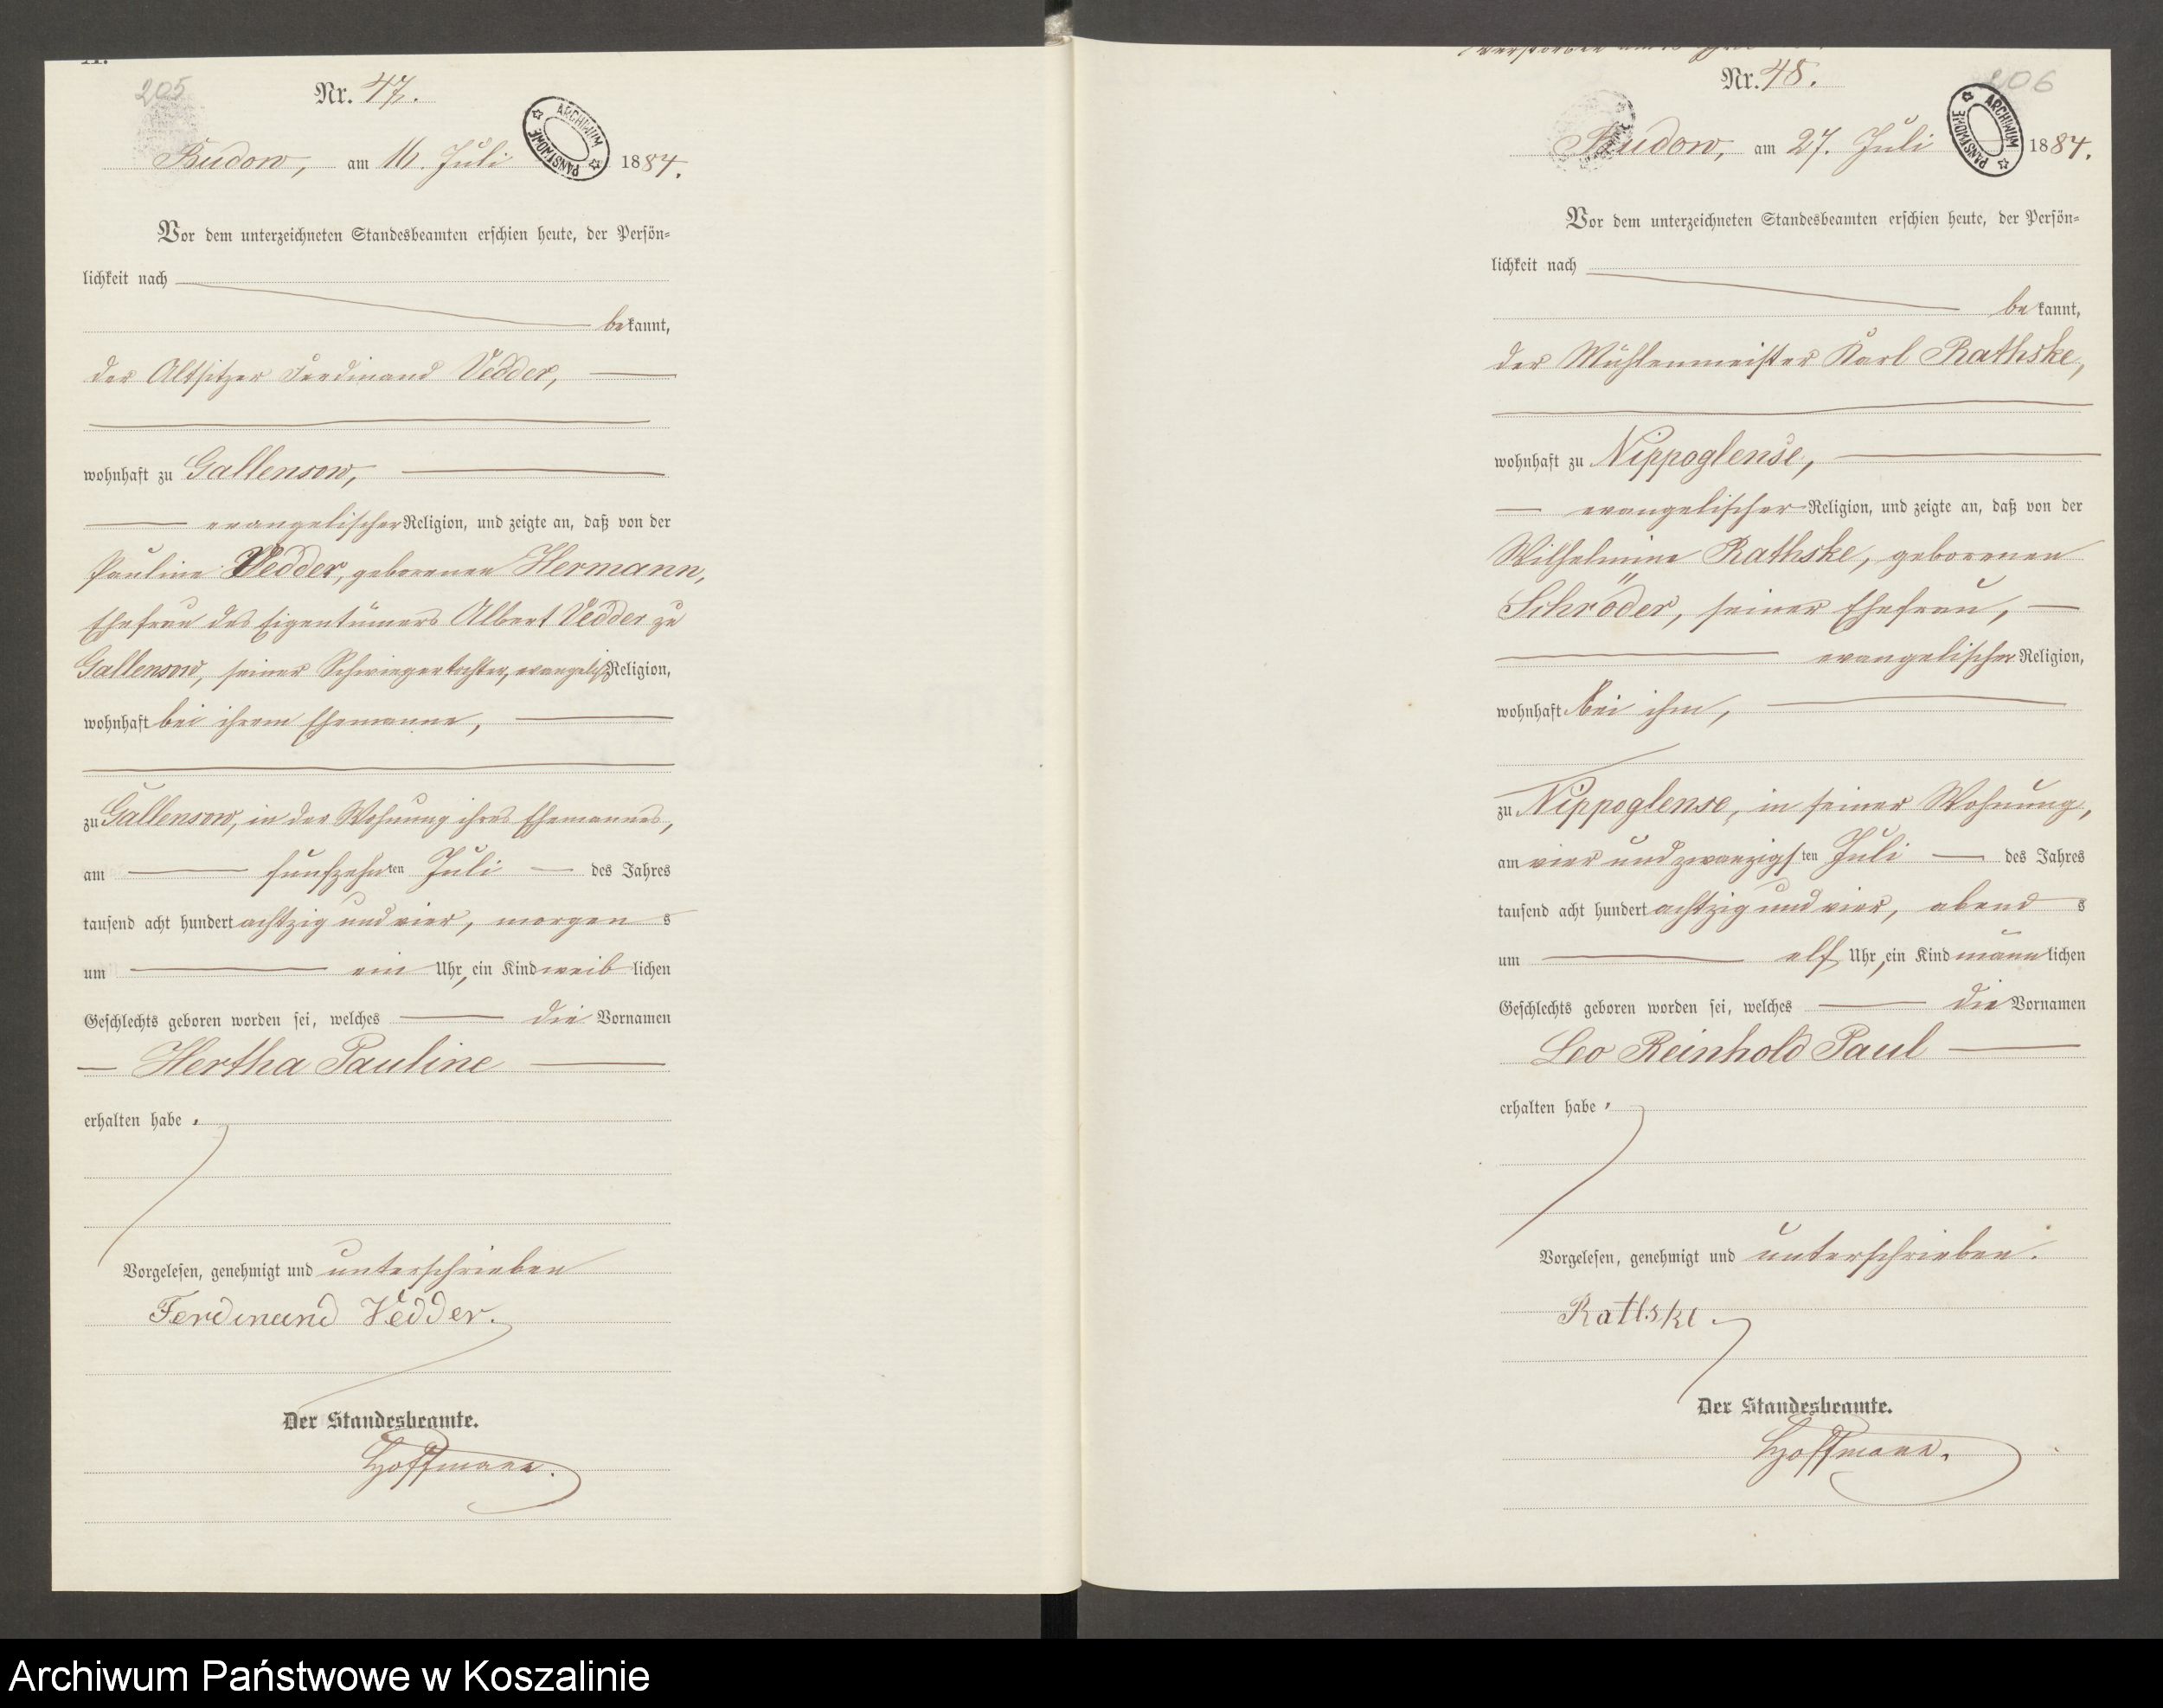 205
Nr. 47.
ARCHIWUM PAŃSTWOWE
Budow, am 16. Juli 1884.
Vor dem unterzeichneten Standesbeamten erschien heute, der Persön-
lichkeit nach
bekannt,
der Altsitzer Ferdinand Vedder,
wohnhaft zu Gallensow,
evangelischer Religion, und zeigte an, daß von der
Pauline Vedder, geborenen Hermann,
Ehefrau des Eigentümers Albert Vedder zu
Gallensow, seiner Schwiegertochter, evangelisch Religion,
wohnhaft bei ihrem Ehemanne,
zu Gallensow, in der Wohnung ihres Ehemannes,
am fünfzehnten Juli des Jahres
tausend acht hundert achtzig und vier, morgens
um ein Uhr, ein Kind weiblichen
Geschlechts geboren worden sei, welches die Vornamen
Hertha Pauline
erhalten habe.
Vorgelesen, genehmigt und unterschrieben
Ferdinand Vedder.
Der Standesbeamte.
Hoffmann.
206
Nr. 48.
ARCHIWUM PAŃSTWOWE
Budow, am 27. Juli 1884.
Vor dem unterzeichneten Standesbeamten erschien heute, der Persön-
lichkeit nach
bekannt,
der Mühlenmeister Karl Rathske,
wohnhaft zu Nippoglense,
evangelischer Religion, und zeigte an, daß von der
Wilhelmine Rathske, geborenen
Schröder, seiner Ehefrau,
evangelischer Religion,
wohnhaft bei ihm,
zu Nippoglense, in seiner Wohnung,
am vier und zwanzigsten Juli des Jahres
tausend acht hundert achtzig und vier, abends
um elf Uhr, ein Kind männlichen
Geschlechts geboren worden sei, welches die Vornamen
Leo Reinhold Paul
erhalten habe.
Vorgelesen, genehmigt und unterschrieben.
Rathske
Der Standesbeamte.
Hoffmann.
Archiwum Państwowe w Koszalinie